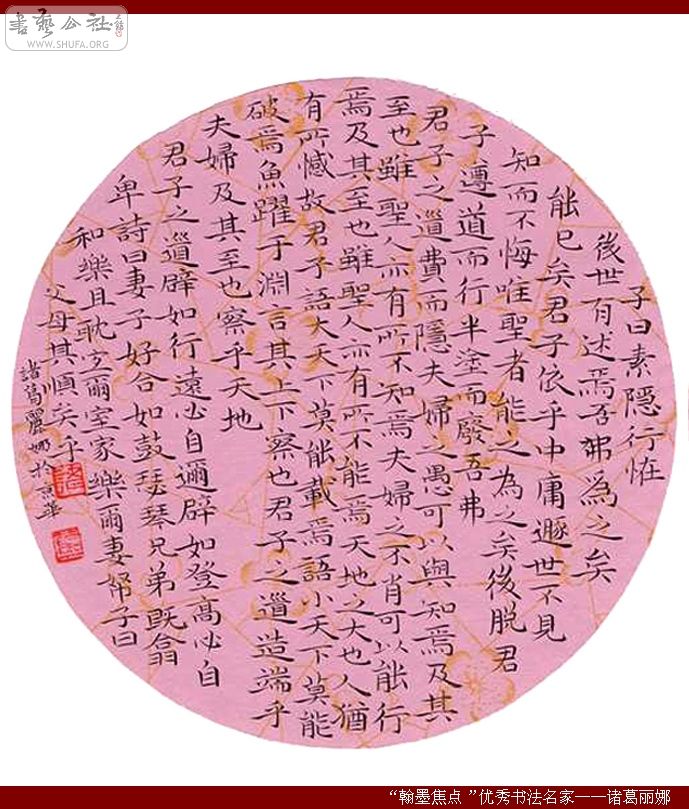 書藝公社
WWW.SHUFA.ORG
子曰素隱行恠
後世有述焉吾弗為之矣
能已矣君子依乎中庸遯世不見
知而不悔唯聖者能之為之矣後脫君
子遵道而行半塗而廢吾弗
君子之道費而隱夫婦之愚可以與知焉及其
至也雖聖人亦有所不知焉夫婦之不肖可以能行
焉及其至也雖聖人亦有所不能焉天地之大也人猶
有所憾故君子語大天下莫能載焉語小天下莫能
破焉魚躍于淵言其上下察也君子之道造端乎
夫婦及其至也察乎天地
君子之道辟如行遠必自邇辟如登高必自
卑詩曰妻子好合如鼓瑟琴兄弟既翕
和樂且耽宜爾室家樂爾妻帑子曰
父母其順矣乎
諸葛麗娜於京華
“翰墨焦点 ”优秀书法名家——诸葛丽娜